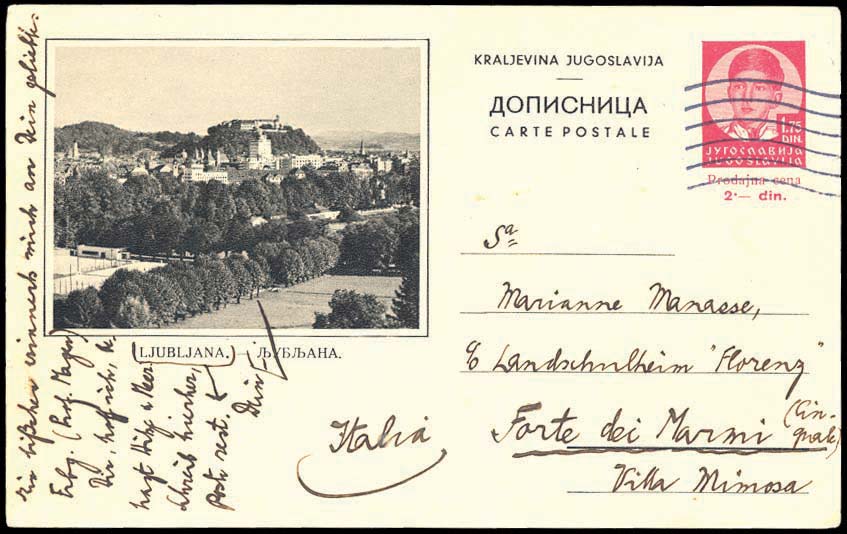 KRALJEVINA JUGOSLAVIJA
ДОПИСНИЦА
CARTE POSTALE
1.75
DIN.
ЈУГОСЛАВИЈА
JUGOSLAVIJA
Prodajna cena
2·— din.
LJUBLJANA. — ЉУБЉАНА.
Sª
Marianne Manasse,
c/o Landschulheim "Florenz"
Forte dei Marmi (Cin-
quale)
Villa Mimosa
Italia
ein bißchen erinnert mich an Dein geliebt.
Dir hoff ich, Du
hast
schreib hierher,
Post rest.
Dein